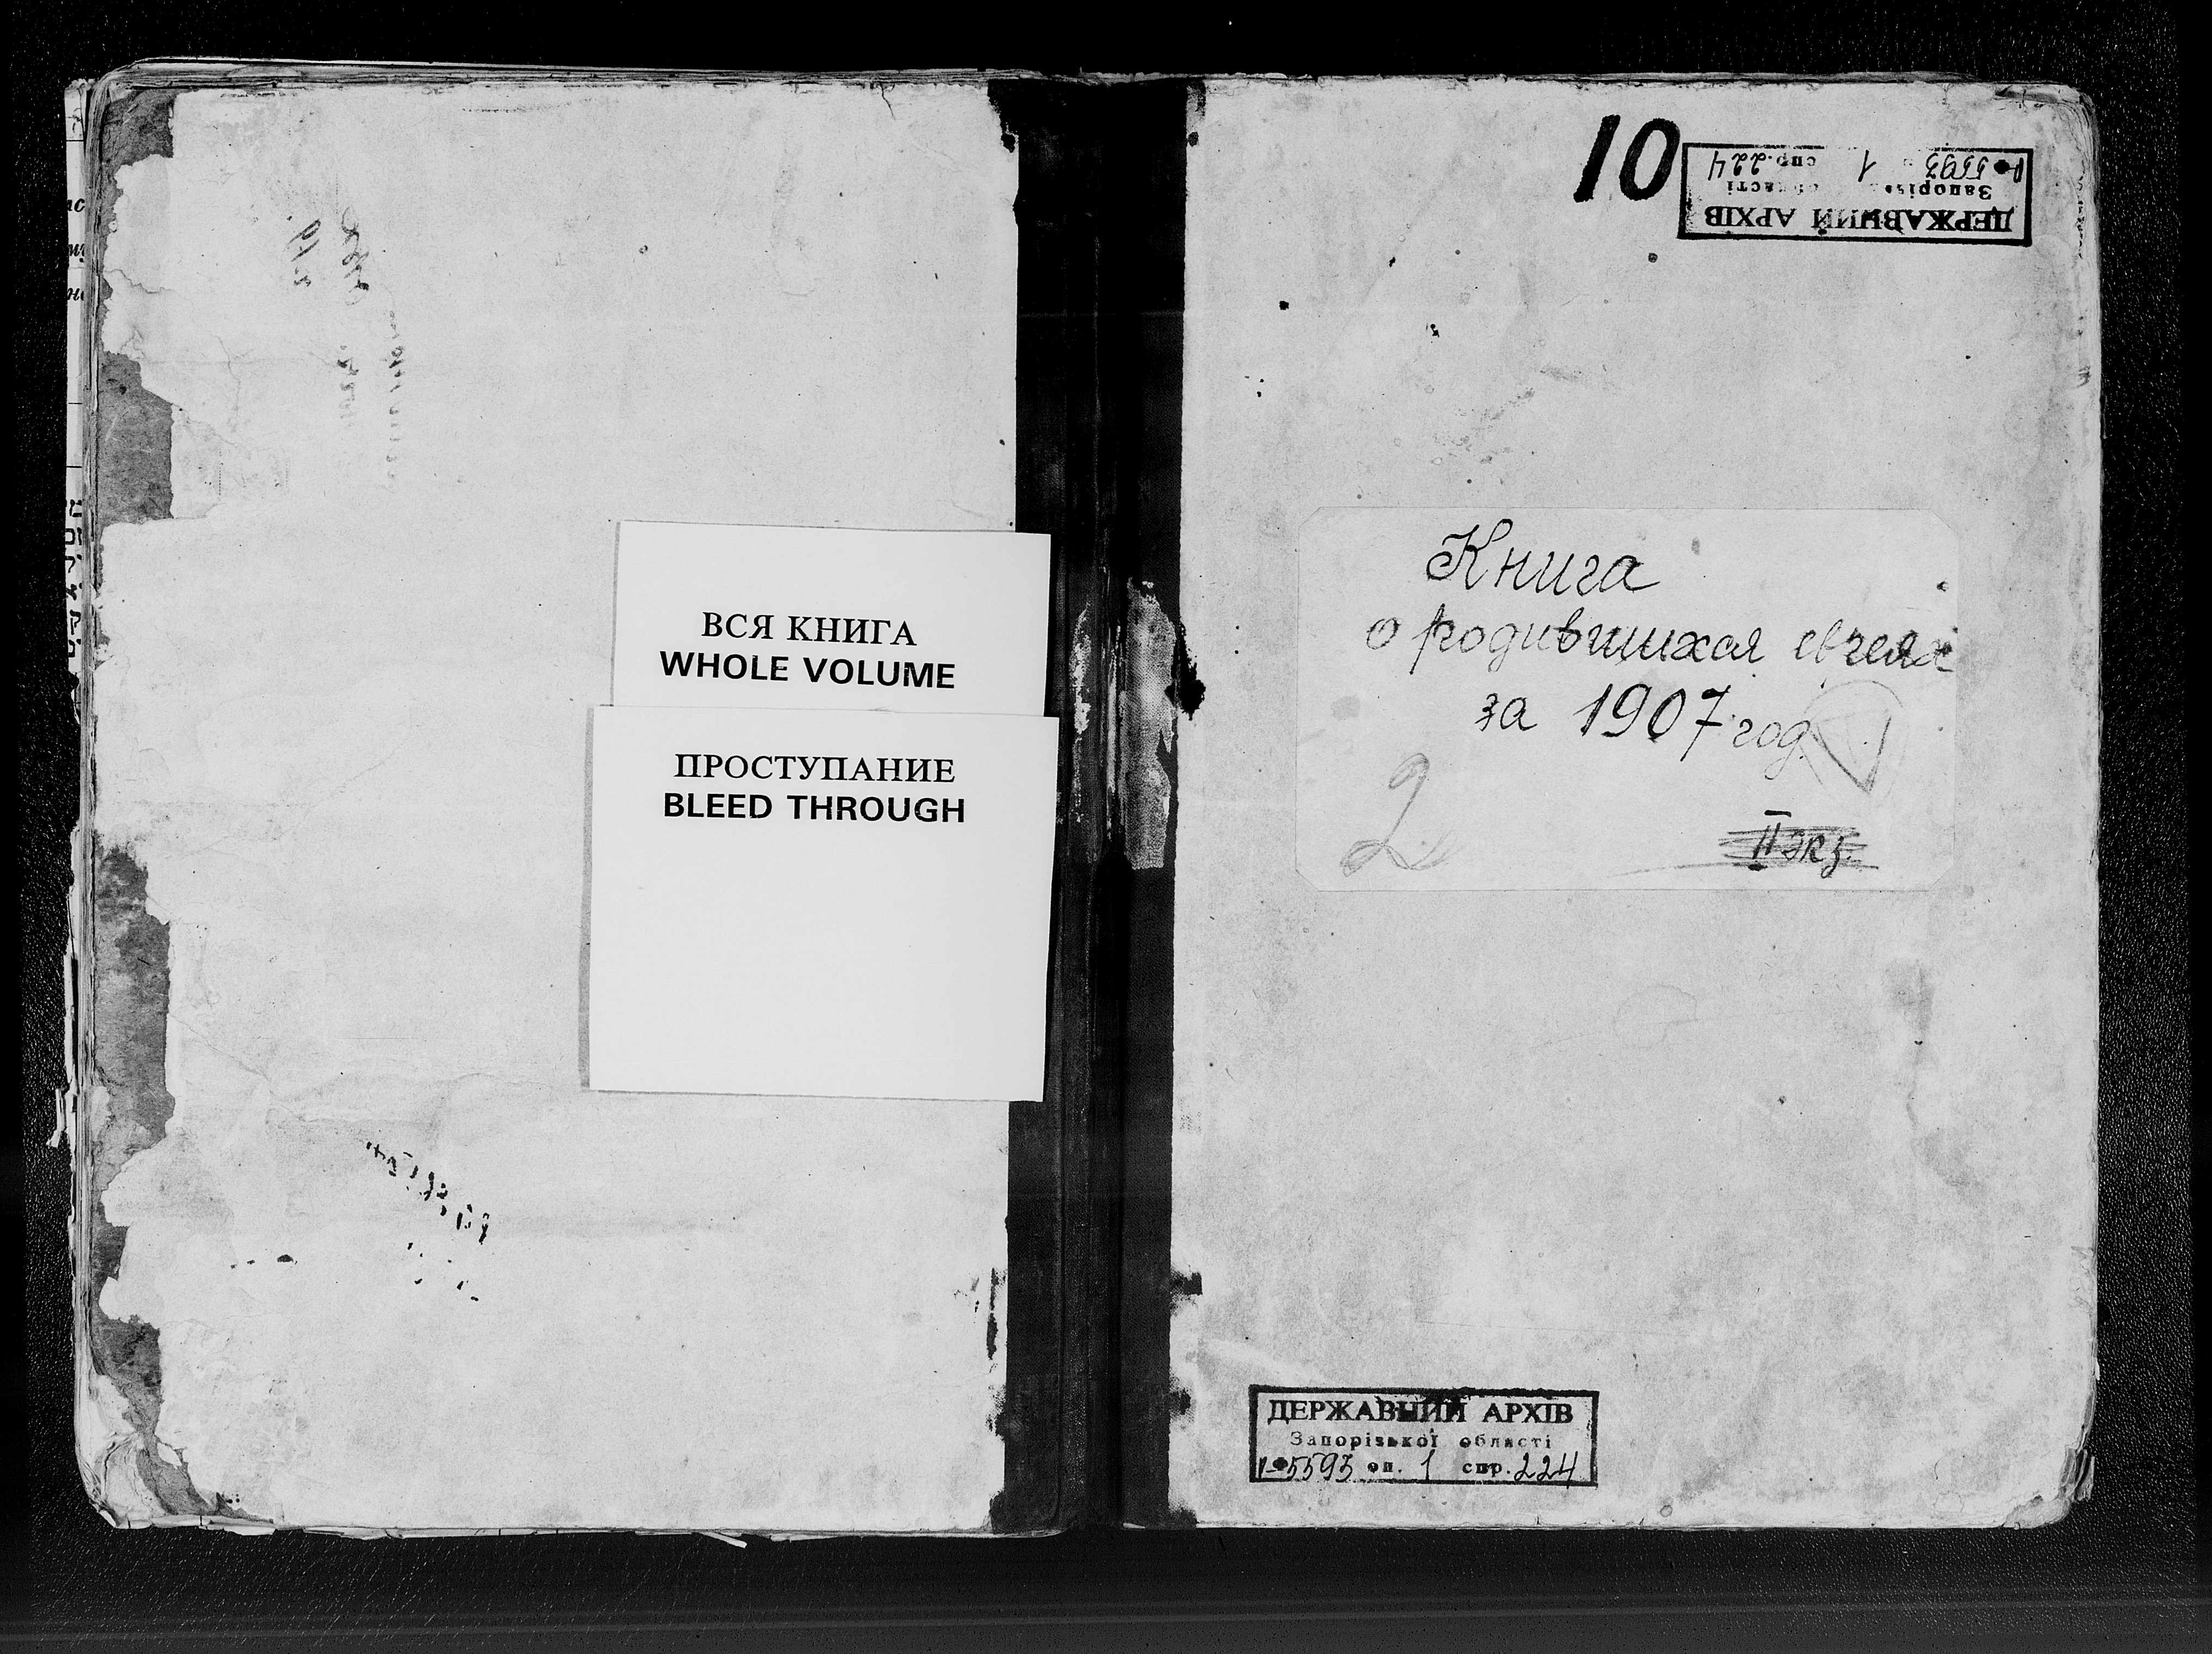 ВСЯ КНИГА
WHOLE VOLUME
ПРОСТУПАНИЕ
BLEED THROUGH
10
ДЕРЖАВНИЙ АРХІВ
Р-5593 1 спр. 224
Книга
о родившихся евреях
за 1907 год.
2
II экз.
ДЕРЖАВНИЙ АРХІВ
Запорізької області
Р-5593 оп. 1 спр. 224